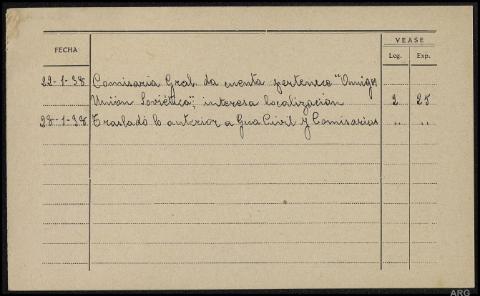 VEASE
FECHA
Leg. Exp.
22-1-38 Comisaria Gral. da cuenta pertenece "Amigos
Unión Soviética", interesa localización 2 25
28-1-38 Trasladó lo anterior a Gua Civil y Comisarias " "
ARG